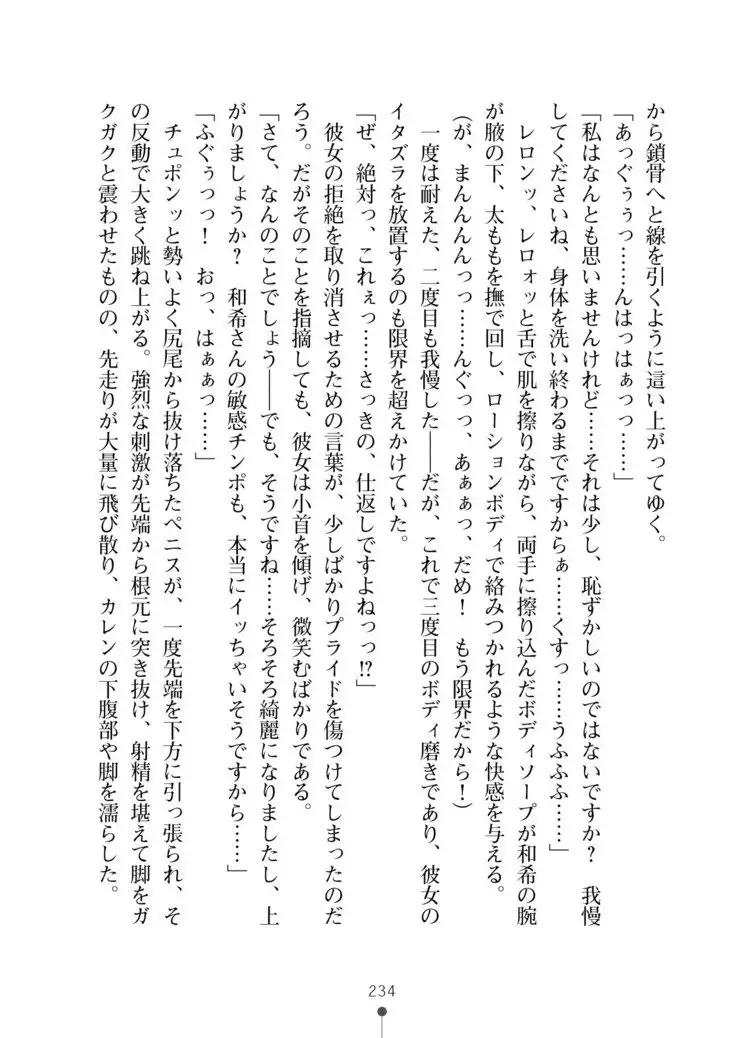 から鎖骨へと線を引くように這い上がってゆく。
「あっぐぅぅっ……んはっはぁっっ……」
「私はなんとも思いませんけれど……それは少し、恥ずかしいのではないですか？　我慢
してくださいね、身体を洗い終わるまでですからぁ……くすっ……うふふふ……」
　レロンッ、レロォッと舌で肌を擦りながら、両手に擦り込んだボディソープが和希の腕
が腋の下、太ももを撫で回し、ローションボディで絡みつかれるような快感を与える。
（が、まんんんんっっ……んぐっっ、あぁぁっ、だめ！　もう限界だから！）
　一度は耐えた、二度目も我慢した――だが、これで三度目のボディ磨きであり、彼女の
イタズラを放置するのも限界を超えかけていた。
「ぜ、絶対っ、これぇっ……さっきの、仕返しですよねっっ!?」
　彼女の拒絶を取り消させるための言葉が、少しばかりプライドを傷つけてしまったのだ
ろう。だがそのことを指摘しても、彼女は小首を傾げ、微笑むばかりである。
「さて、なんのことでしょう――でも、そうですね……そろそろ綺麗になりましたし、上
がりましょうか？　和希さんの敏感チンポも、本当にイッちゃいそうですから……」
「ふぐぅっっ！　おっ、はぁぁっ……」
　チュポンッと勢いよく尻尾から抜け落ちたペニスが、一度先端を下方に引っ張られ、そ
の反動で大きく跳ね上がる。強烈な刺激が先端から根元に突き抜け、射精を堪えて脚をガ
クガクと震わせたものの、先走りが大量に飛び散り、カレンの下腹部や脚を濡らした。
234